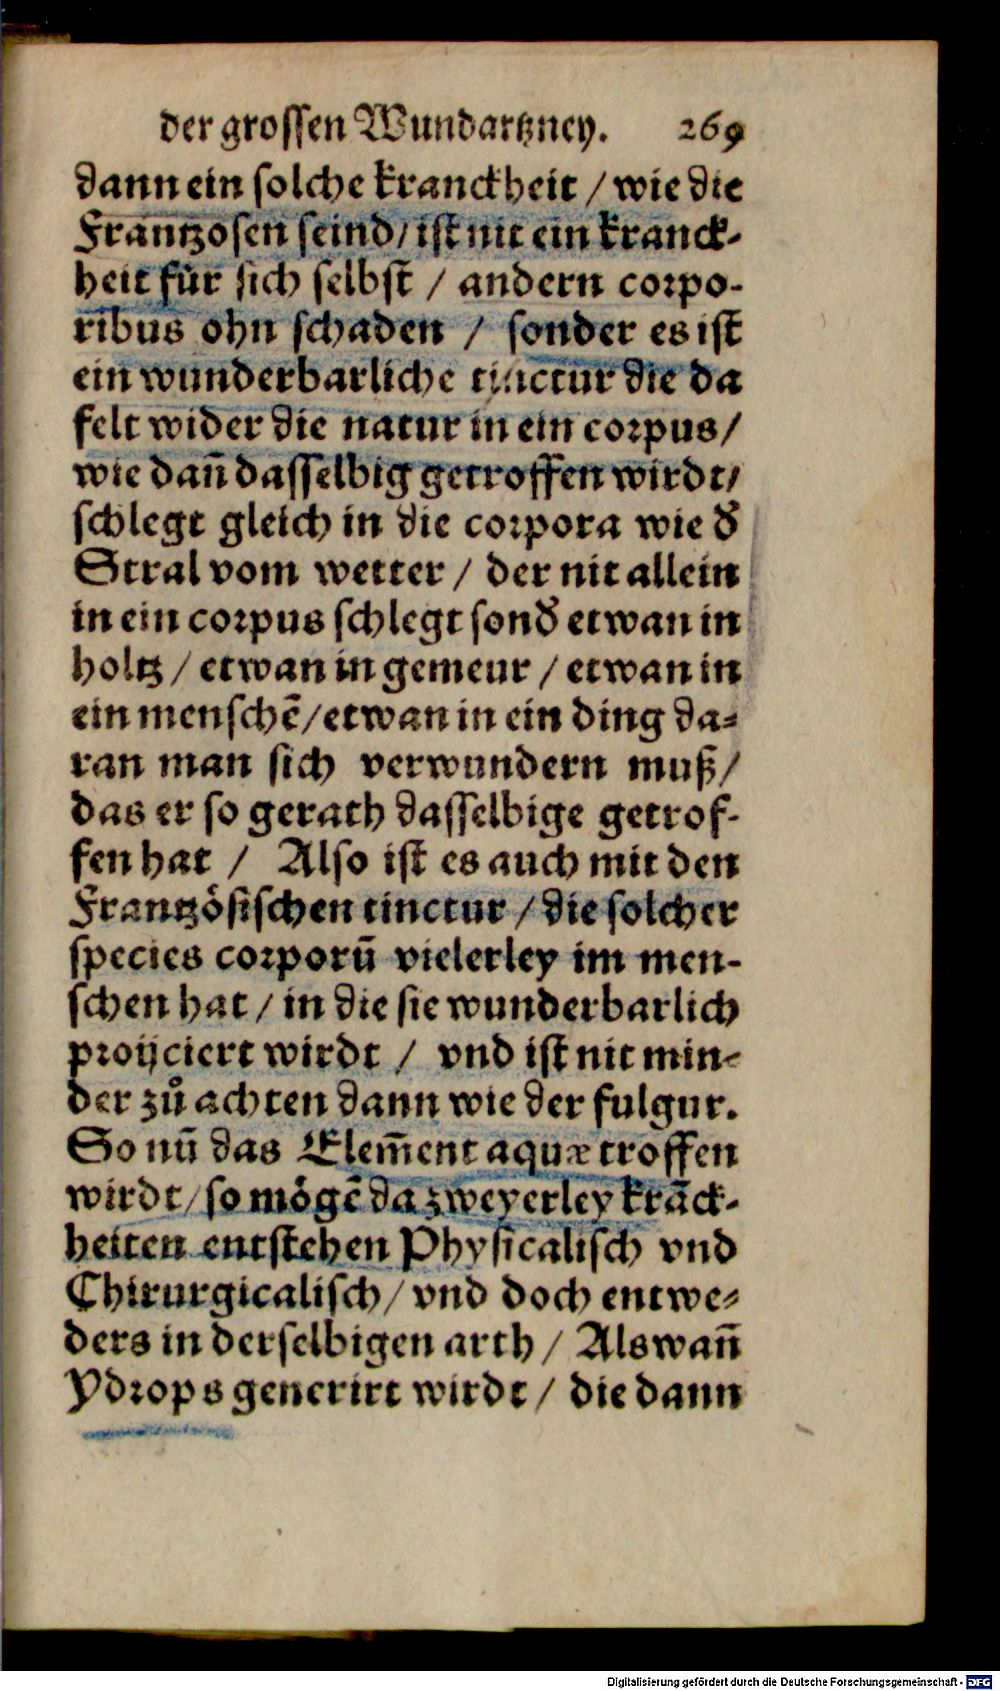 der grossen Wundartzney. 269
dann ein solche kranckheit / wie die
Frantzosen seind / ist nit ein kranck-
heit für sich selbst / andern corpo-
ribus ohn schaden / sonder es ist
ein wunderbarliche tinctur die da
felt wider die natur in ein corpus /
wie dañ dasselbig getroffen wirdt /
schlegt gleich in die corpora wie d̕
Stral vom wetter / der nit allein
in ein corpus schlegt sond̕ etwan in
holtz / etwan in gemeur / etwan in
ein menschẽ / etwan in ein ding da-
ran man sich verwundern muß /
das er so gerath dasselbige getrof-
fen hat / Also ist es auch mit den
Frantzösischen tinctur / die solcher
species corporũ vielerley im men-
schen hat / in die sie wunderbarlich
proijciert wirdt / vnd ist nit min-
der zů achten dann wie der fulgur.
So nũ das Elem̃ent aquæ troffen
wirdt / so mögẽ da zweyerley krãck-
heiten entstehen Physicalisch vnd
Chirurgicalisch / vnd doch entwe-
ders in derselbigen arth / Als wañ
Ydrops generirt wirdt / die dann
Digitalisierung gefördert durch die Deutsche Forschungsgemeinschaft - DFG